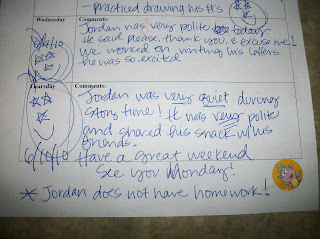 practiced drawing his #s
Wednesday Comments:
Jordan was very polite today
He said please, thank you, & excuse me!
6/9/10 We worked on writing his letters
he was so excited
Thursday Comments:
Jordan was very quiet during
story time! He was very polite
and shared his snack w/his
friends.
6/10/10 Have a great weekend
See you Monday!
* Jordan does not have homework!